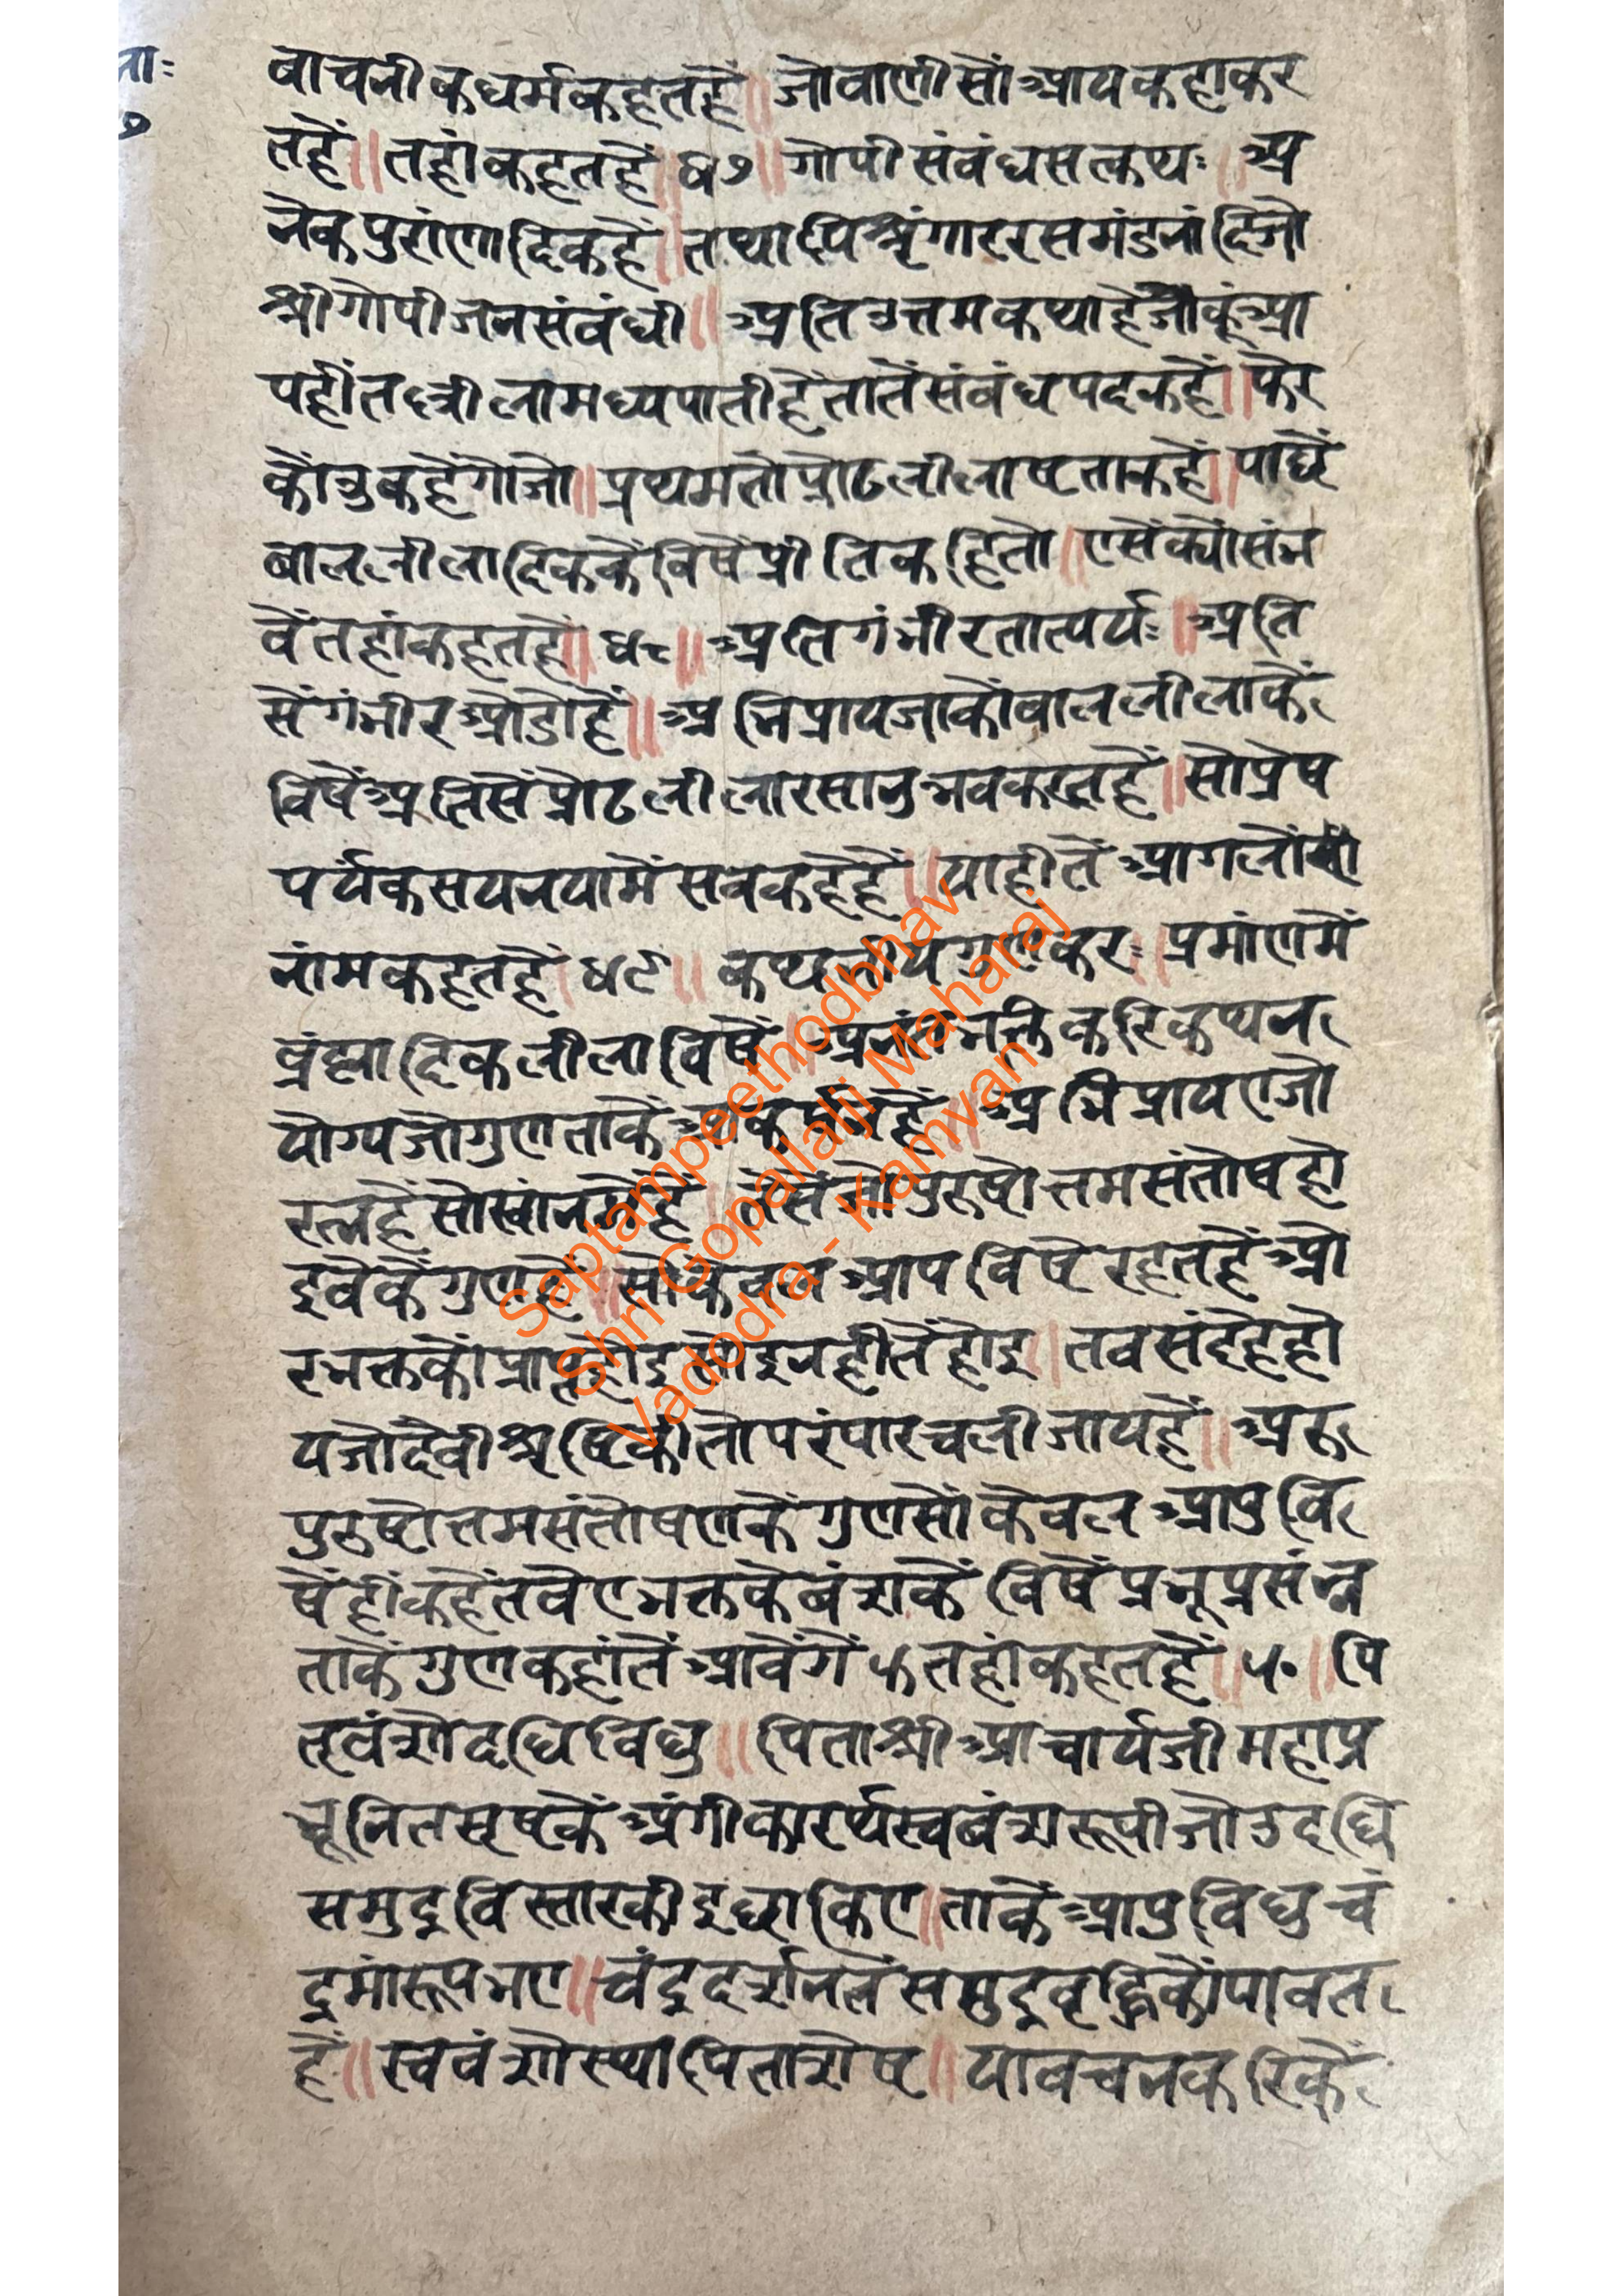 ना:
७
बाचनीकधर्मकहतहै॥ जोवाणीसोंआपकहाकर
तहैं॥ तहांकहतहैं॥ ४७॥ गोपीसंबंधसत्कथः॥ अ
नेकपुरांणादिकहैं॥ तथापिश्रृंगाररसमंडनांदिजो
श्रीगोपीजनसंबंधी॥ अतिउत्तमकथाहैजीकूंआ
पहींतछीलामध्यपातीहैंतातेंसंबंधपदकहैं॥ फेर
कोंउकहैंगोजो॥ प्रथमतोप्रोढलीलाषताकहैं॥ पाछें
बाललीलादिककेंविषेंप्रीतिकहितो॥ एसेंक्योंसंभ
वेंतहांकहतहैं॥ ४८॥ अतिगंभीरतात्पर्यः॥ अति
सेंगंभीरओडोहैं॥ अभिप्रायजाकोंबाललीलाकें
विषेंअतिसेंप्रोढलीलारसानुभवकरतहैं॥ सोप्रेष
पर्यकसयनयामेंसबकहेहैं॥ याहीतें आगलोंसी
नांमकहतहैं॥ ४९॥ कथनीयगुणकरः॥ प्रमांणमें
ब्रंह्मादिकलीलाविषें॥ अनंतभक्तिकरिकथन
योग्यजोगुणताकेंआकर्मतहैं॥ अभिप्रायएजो
रत्नहैंसोखांनमेंहैं॥ तैसेंजोपुरुषोत्तमसंतोषहो
इवेकेंगुणहैं॥ सोकेवलआपविषेंरहतहैंओ
रभक्तकोंप्राप्तहोइसोइनहीतेंहोइ॥ तबसंदेहहो
यजोदैवीश्रृष्टिकीतोपरंपारचलीजायहैं॥ अरु
पुरुषोत्तमसंतोषणकेंगुणसोंकेवलआपुवि
षेंहींकहैंतबेएभक्तकेबंशकेंविषेंप्रभूप्रसंन्न
ताकेंगुणकहांतेंआवेंगें५तहांकहतहैं॥ ५०॥ पि
तृवंशोदधिविधु॥ पिताश्रीआचार्यजीमहाप्र
भूनितसृषकेंअंगीकारर्थस्वबंशरूपीजोउदधि
समुद्रविस्तारकीइछाकिए॥ ताकेंआपुविधुचं
द्रमांरूपभए॥ चंद्रदर्शनतेंसमुद्रवृद्धिकोंपावत
हैं॥ स्ववंशोस्थापिताशेष॥ यावचनकरिकें
Saptampeethodbhav
Shri Gopallalji Maharaj
Vadodra - Kamvan